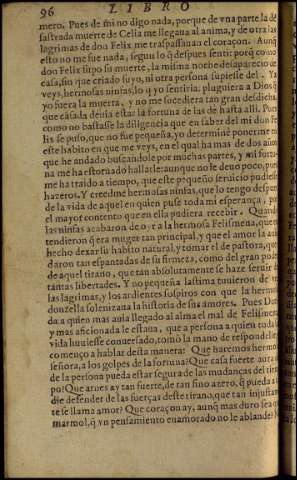 96 LIBRO
mero. Pues de mi no digo nada, porque de vna parte la de
sastrada muerte de Celia me llegaua al anima, y de otra las
lagrimas de don Felix me traspassauan el coraçon. Aunq̃
esto no me fue nada, segun lo q̃ despues senti: porq̃ como
don Felix supo su muerte, la misma noche desaparecio de
casa, sin que criado suyo, ni otra persona supiesse del. Ya
veys, hermosas ninfas, lo q̃ yo sentiria: pluguiera a Dios q̃
yo fuera la muerta, y no me sucediera tan gran desdicha,
que casada deuia estar la fortuna de las de hasta alli. Pues
como no bastasse la diligencia que en saber del mi don Fe
lix se puso, que no fue pequeña, yo determinè ponerme en
este habito en que me veys, en el qual ha mas de dos años
que he andado buscandole por muchas partes, y mi fortu-
na me ha estornado hallarle: aunque no le deuo poco, pues
me ha traido a tiempo, que este pequeño seruicio pudiesse
hazeros. Y creedme hermosas ninfas, que lo tengo despues
de la vida de aquel en quien puse toda mi esperança, por
el mayor contento que en ella pudiera recebir. Quando
las ninfas acabaron de oyr a la hermosa Felismena, y en-
tendieron q̃ era muger tan principal, y que el amor la auia
hecho dexar su habito natural, y tomar el de pastora, que-
daron tan espantadas de su firmeza, como del gran poder
de aquel tirano, que tan absolutamente se haze seruir de
tantas libertades. Y no pequeña lastima tuuieron de ver
las lagrimas, y los ardientes sospiros con que la hermosa
donzella solenizaua la historia de sus amores. Pues Dori
da a quien mas auia llegado al alma el mal de Felismena,
y mas aficionada le estaua, que a persona a quien toda su
vida huuiesse conuersado, tomò la mano de respondelle, y
començo a hablar desta manera: Que haremos hermosa
señora, a los golpes de la fortuna? Que casa fuerte aura do
de la persona pueda estar segura de las mudanças del tiem
po? Que arnes ay tan fuerte, de tan fino azero, q̃ pueda a na
die defender de las fuerças deste tirano, que tan injustamen
te se llama amor? Que coraçon ay, aunq̃ mas duro sea que
marmol, q̃ vn pensamiento enamorado no le ablande? No